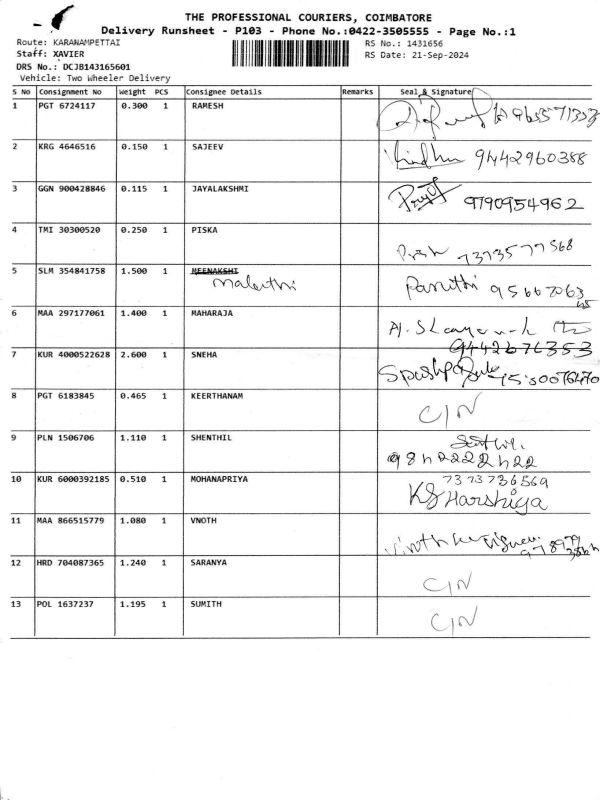 THE PROFESSIONAL COURIERS, COIMBATORE
Delivery Runsheet - P103 - Phone No.:0422-3505555 - Page No.:1
Route: KARANAMPETTAI RS No.: 1431656
Staff: XAVIER RS Date: 21-Sep-2024
DRS No.: DCJB143165601
Vehicle: Two Wheeler Delivery
S No Consignment No Weight PCS Consignee Details Remarks Seal & Signature
1 PGT 6724117 0.300 1 RAMESH
2 KRG 4646516 0.150 1 SAJEEV 9442960388
3 GGN 900428846 0.115 1 JAYALAKSHMI 9790954962
4 TMI 30300520 0.250 1 PISKA 7373577568
5 SLM 354841758 1.500 1 MEENAKSHI
Malathi
6 MAA 297177061 1.400 1 MAHARAJA
9442676353
7 KUR 4000522628 2.600 1 SNEHA
8 PGT 6183845 0.465 1 KEERTHANAM C/N
9 PLN 1506706 1.110 1 SHENTHIL
10 KUR 6000392185 0.510 1 MOHANAPRIYA 7373736569
KS Harshiga
11 MAA 866515779 1.080 1 VNOTH
12 HRD 704087365 1.240 1 SARANYA C/N
13 POL 1637237 1.195 1 SUMITH C/N